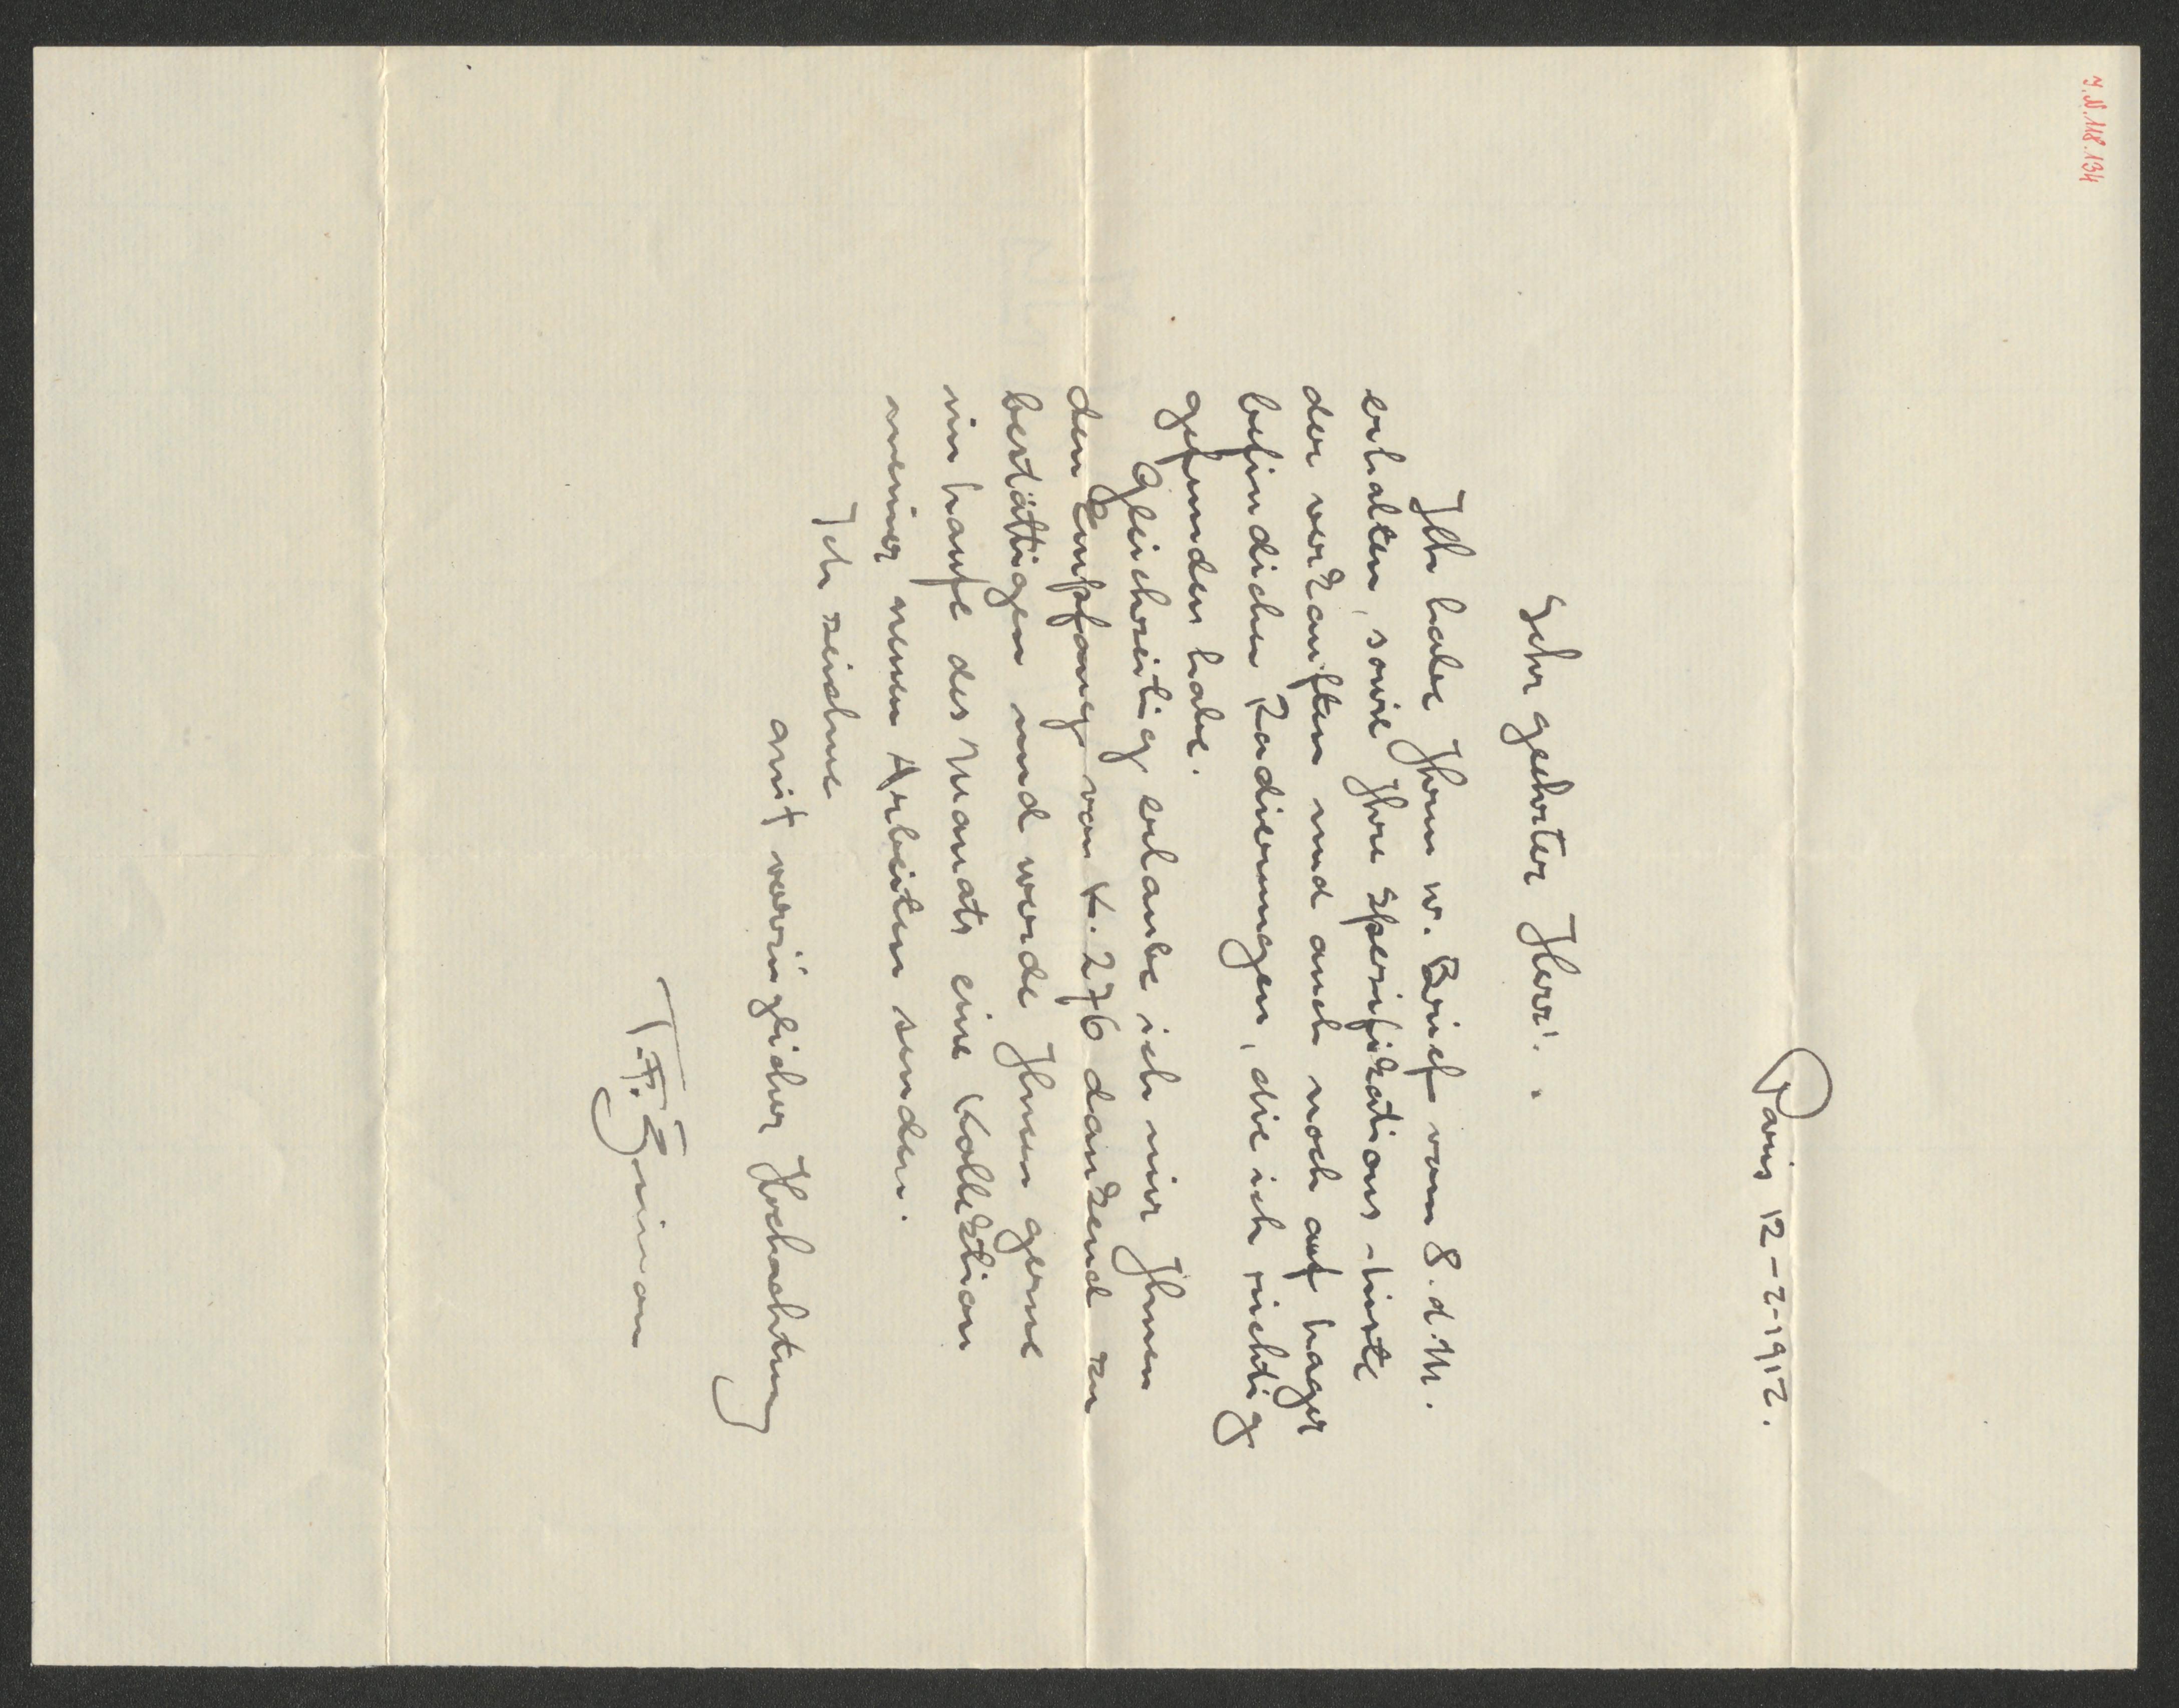 J.N. 118.134
Paris 12-2-1912.
Sehr geehrter Herr!
Ich habe Ihren w. Brief vom 8. d. M.
erhalten, sowie Ihre Spezifikations-Liste
der verkauften und auch noch auf Lager
befindichen Radierungen, die ich richtig
gefunden habe.
Gleichzeitig erlaube ich mir Ihnen
den Empfang von K. 276 dankend zu
bestättigen und werde Ihnen gerne
im Laufe des Monats eine Kollektion
meiner neuen Arbeiten senden.
Ich zeichne
mit vorzüglicher Hochachtung
T.F. Šimon